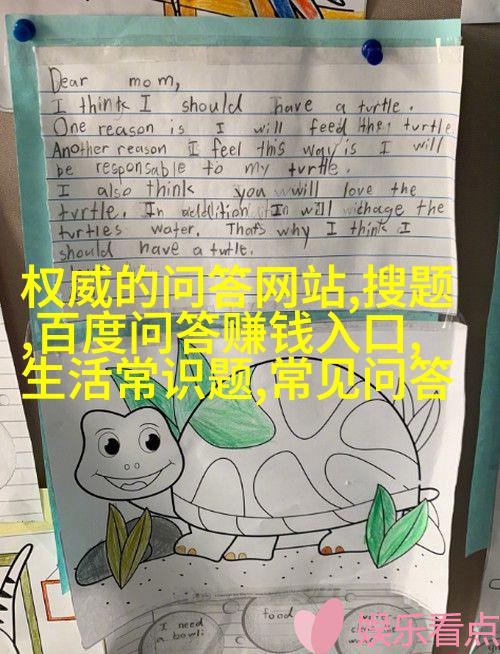 Dear mom,
I think I should have a turtle.
One reason is I will feed the turtle.
Another reason I feel this way is I will
be responsable to my turtle.
I also think you will love the
turtle. In addition I will chage the
turtles water. That's why I think I
should have a turtle.
权威的问答网站,搜题
,百度问答赚钱入口,
生活常识题,常见问答
I need
a bowl
food
娱乐看点